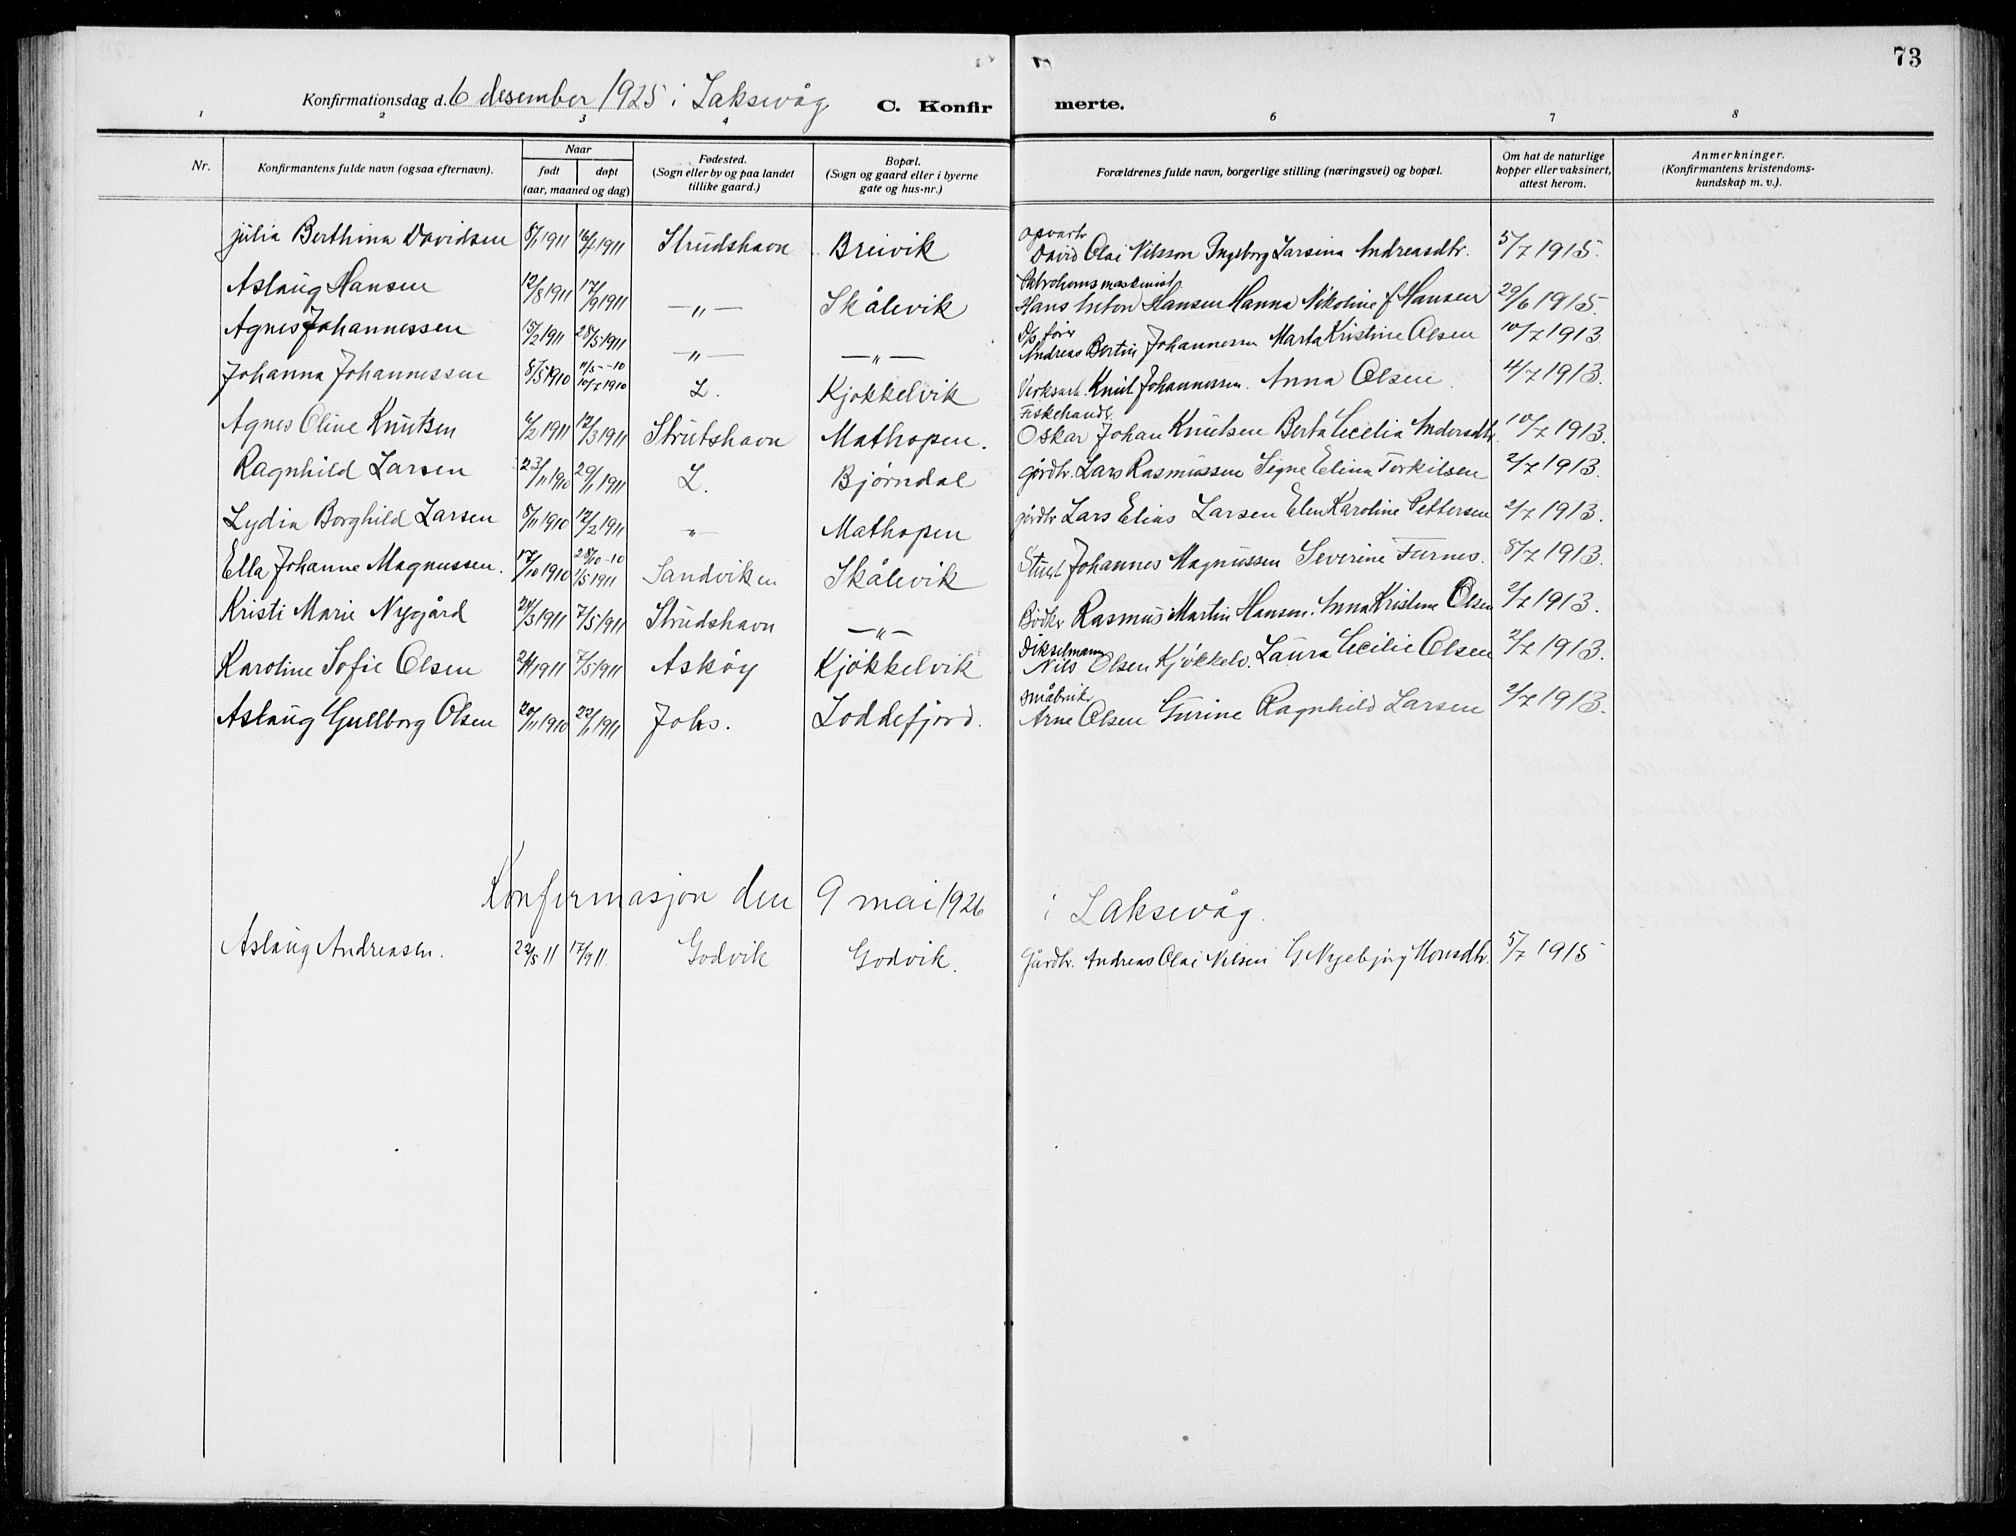 73
Konfirmationsdag d. 6 desember 1925 i Laksevåg C. Konfirmerte.
1 2 3 4 6 7 8
Nr. Konfirmantens fulde navn (ogsaa efternavn). Naar født døpt (aar, maaned og dag) Fødested. (Sogn eller by og paa landet tillike gaard.) Bopæl. (Sogn og gaard eller i byerne gate og hus-nr.) Forældrenes fulde navn, borgerlige stilling (næringsvei) og bopæl. Om hat de naturlige kopper eller vaksinert, attest herom. Anmerkninger. (Konfirmantens kristendoms-kundskap m. v.).
Julia Berthina Davidsen 8/1 1911 16/7 1911 Strudshavn Breivik Opvartr David Olai Nilsson Ingeborg Larsina Andreasdtr. 5/7 1915.
Aslaug Hansen 12/8 1911 17/9 1911 —"— Skålevik Hans Anton Hansen Hanna Nikoline f. Hansen 29/6 1915.
Agnes Johannessen 15/2 1911 28/5 1911 —"— —"— D/s fører Andreas Bertin Johannesen Marta Kristine Olsen 10/7 1913.
Johanna Johannessen 8/5 1910 11/5--10 10/7 1910 L. Kjøkkelvik Verksarb. Knut Johannessen. Anna Olsen. 4/7 1913.
Agnes Oline Knutsen 6/2 1911 12/3 1911 Strutshavn Mathopen. Fiskehandl. Oskar Johan Knutsen Berta Cecilia Andersdtr. 10/7 1913.
Ragnhild Larsen 23/11 1910 29/1 1911 L. Bjørndal gårdbr. Lars Rasmussen Signe Elina Torkilsen 2/7 1913.
Lydia Borghild Larsen 8/11 1910 12/2 1911 " Mathopen gårdbr Lars Elias Larsen Elen Karoline Pettersen 2/7 1913.
Ella Johanne Magnussen. 17/10 1910 28/10-10 1/5 1911 Sandviken Skålevik Stuert Johannes Magnussen Severine Furnes. 8/7 1913.
Kristi Marie Nygård 24/3 1911 7/5 1911 Strudshavn —"— Bødkr Rasmus Martin Hansen. Anna Kristine Olsen 2/7 1913.
Karoline Sofie Olsen 2/4 1911 7/5 1911 Askøy Kjøkkelvik Dikselmann Nils Olsen Kjøkkelv. Laura Cecilie Olsen 2/7 1913.
Aslaug Gullborg Olsen 20/11 1910 22/1 1911 Johs. Loddefjord. småbruk. Arne Olsen Gurine Ragnhild Larsen 2/7 1913.
Konfirmasjon den 9 mai 1926 i Laksevåg.
Aslaug Andreasen. 22/5 11 17/9 11. Godvik Godvik. Gårdbr. Andreas Olai Nilsen G. Monsdtr. 5/7 1915